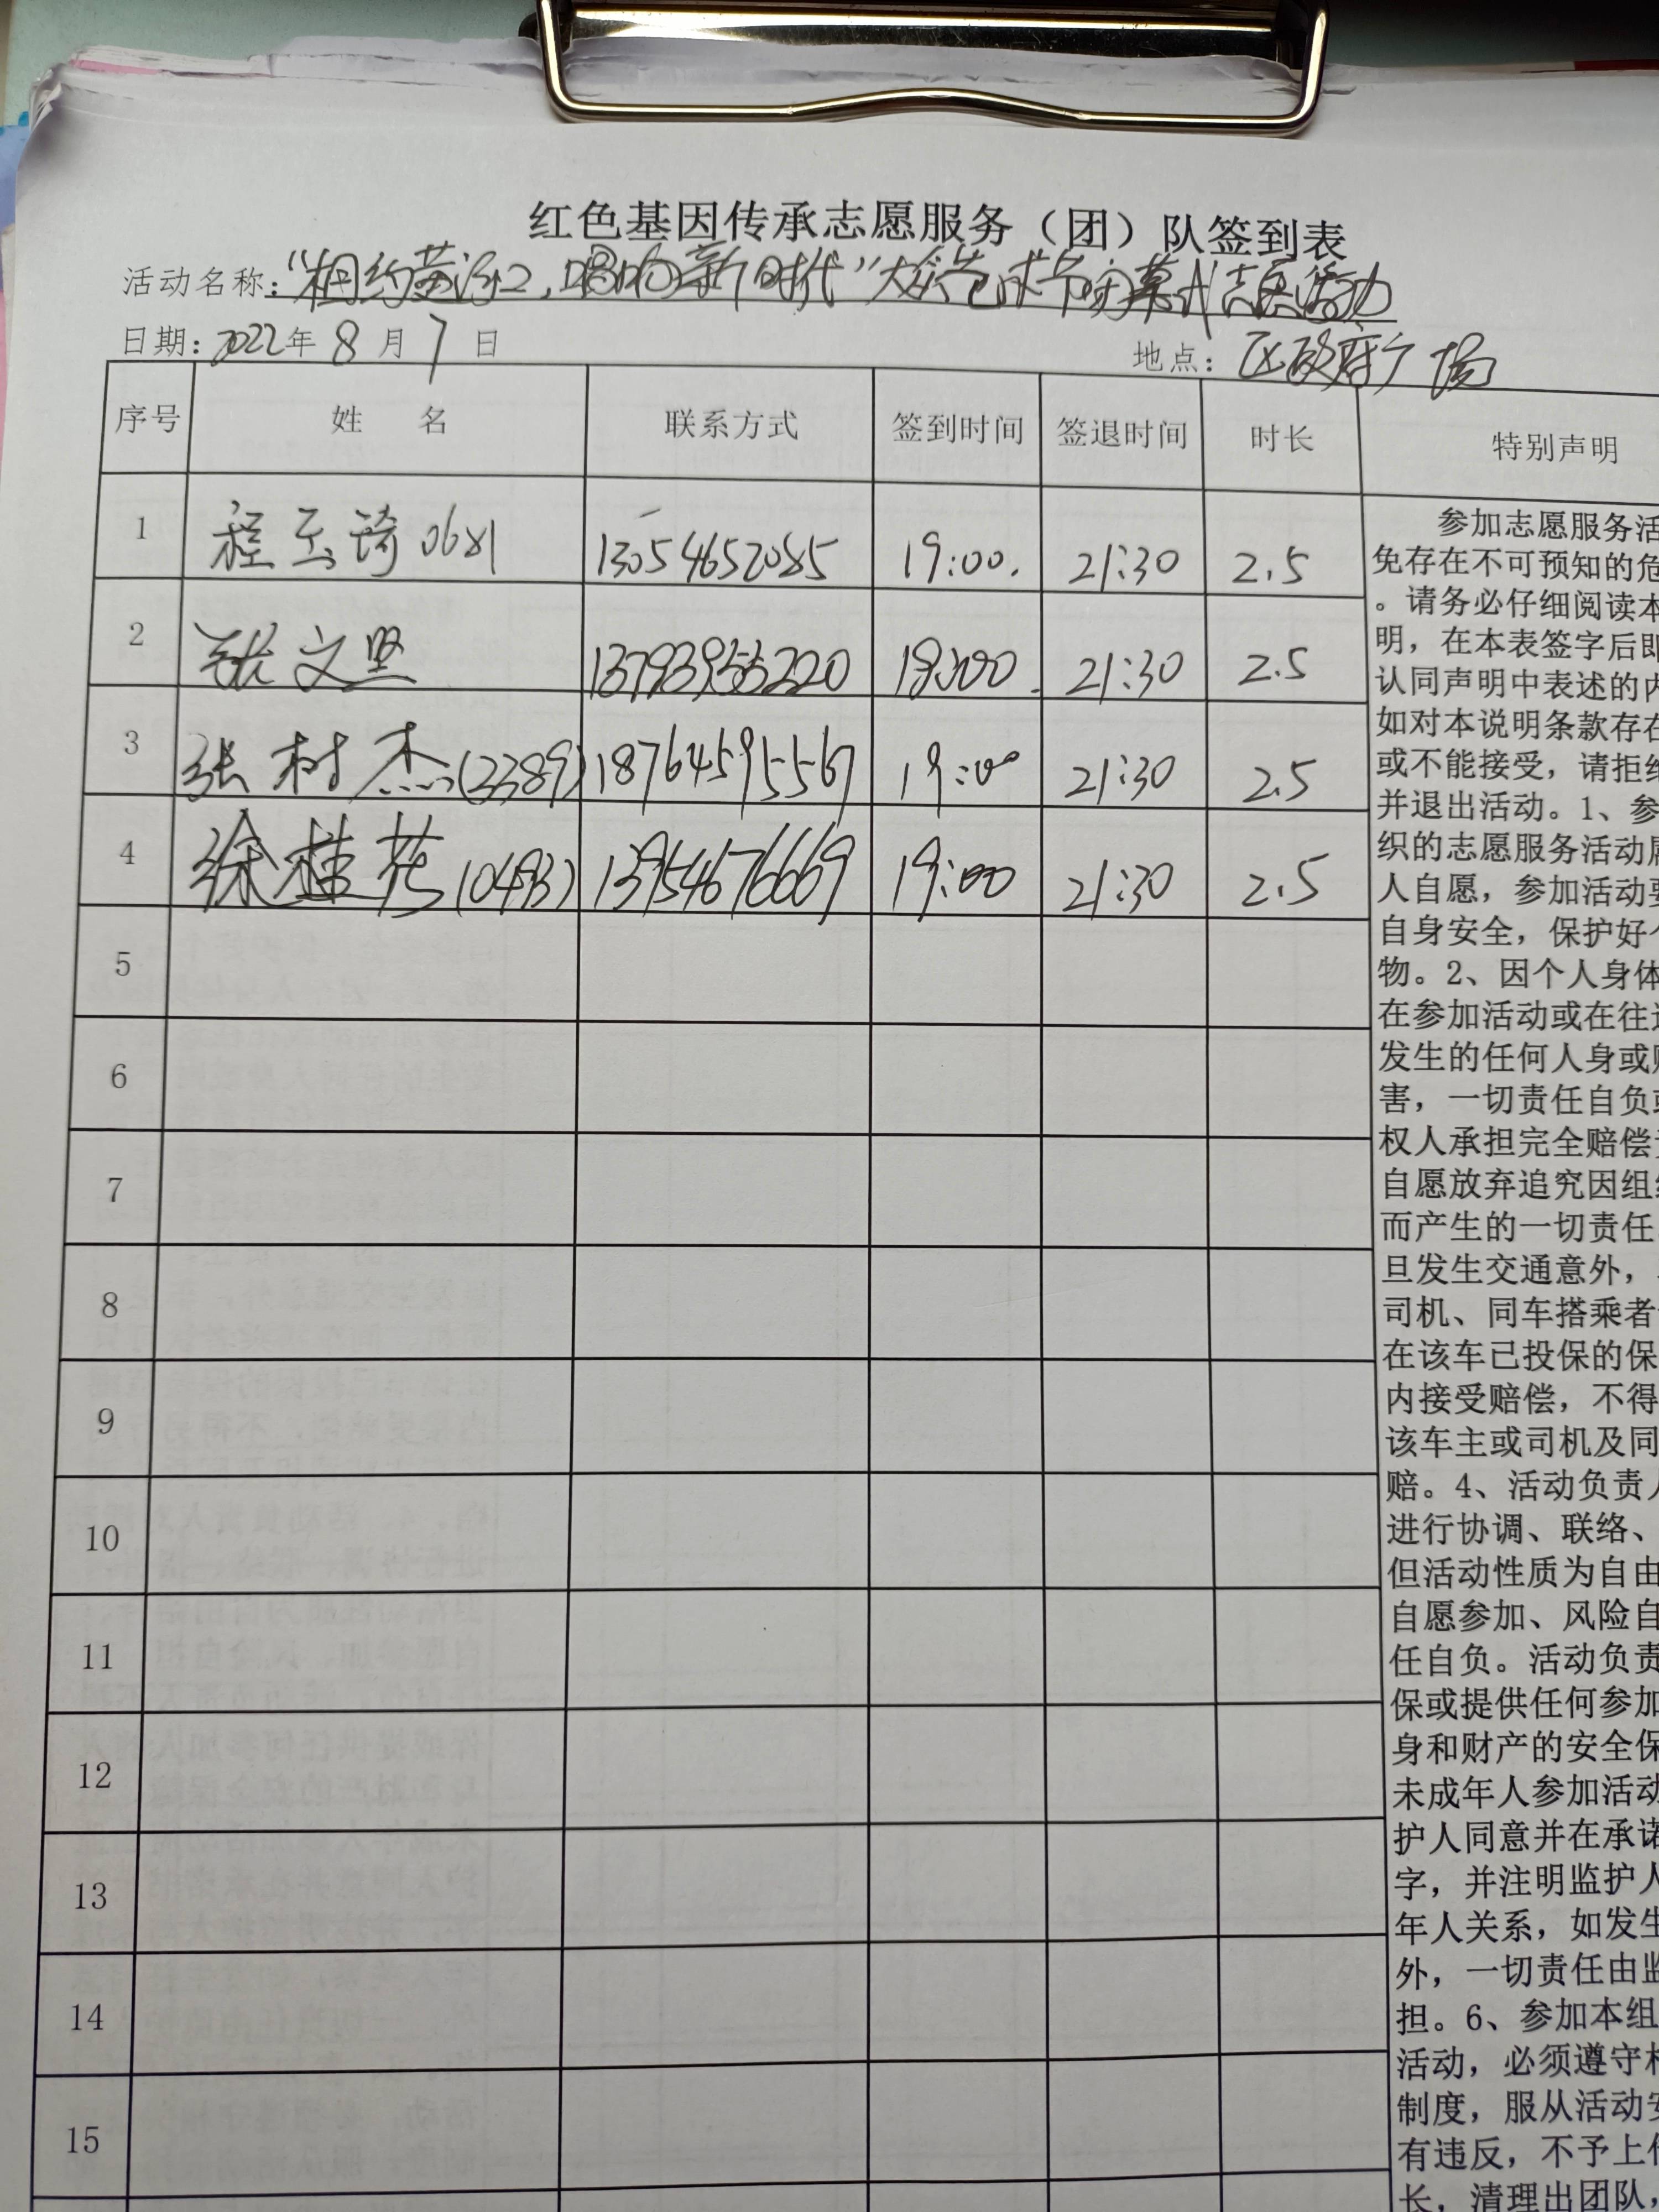 红色基因传承志愿服务（团）队签到表
活动名称：“相约黄河口，唱响新时代”大众艺术节闭幕式志愿活动
日期：2022年8月7日 地点：区政府广场
序号 姓 名 联系方式 签到时间 签退时间 时长 特别声明
1 程玉琦0681 13054652085 19:00. 21:30 2.5
2 张文坚 13793955220 19:00 21:30 2.5
3 张树杰(2389) 18764595567 19:00 21:30 2.5
4 徐桂花(0493) 13954676669 19:00 21:30 2.5
5
6
7
8
9
10
11
12
13
14
15
参加志愿服务活
免存在不可预知的危
。请务必仔细阅读本
明，在本表签字后即
认同声明中表述的内
如对本说明条款存在
或不能接受，请拒绝
并退出活动。1、参
织的志愿服务活动属
人自愿，参加活动要
自身安全，保护好个
物。2、因个人身体
在参加活动或在往返
发生的任何人身或财
害，一切责任自负或
权人承担完全赔偿责
自愿放弃追究因组织
而产生的一切责任
旦发生交通意外，
司机、同车搭乘者
在该车已投保的保
内接受赔偿，不得
该车主或司机及同
赔。4、活动负责人
进行协调、联络、
但活动性质为自由
自愿参加、风险自
任自负。活动负责
保或提供任何参加
身和财产的安全保
未成年人参加活动
护人同意并在承诺
字，并注明监护人
年人关系，如发生
外，一切责任由监
担。6、参加本组
活动，必须遵守相
制度，服从活动安
有违反，不予上传
长，清理出团队，